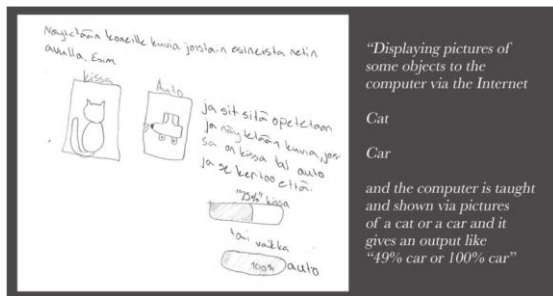 Näytetään koneille kuvia joistain esineistä netin
avulla. Esim
kissa
Auto
ja sit sitä opetetaan
ja näytetään kuvia, jos
sa on kissa tai auto
ja se kertoo että
kissa
tai vaikka
100% auto
"Displaying pictures of
some objects to the
computer via the Internet
Cat
Car
and the computer is taught
and shown via pictures
of a cat or a car and it
gives an output like
"49% car or 100% car"